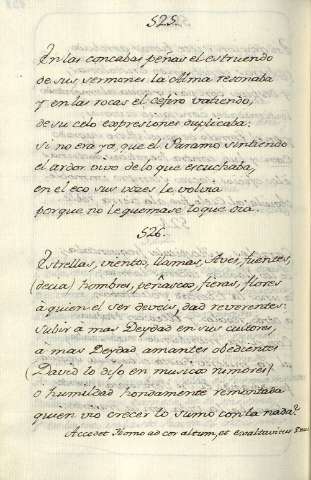 525.
En las concabas peñas el estruendo
de sus sermones la Alma resonaba
y en las rocas el cefiro vatiendo,
de su celo expresiones duplicaba:
si no era ya, que el Paramo sintiendo
el ardor vivo de lo que escuchaba,
en el eco sus vozes le volvia
porque no le quemase lo que oìa.
526.
Estrellas, viento, llamas, Aves, fuentes,
(decia) hombres, peñascos, fieras, flores
à quien el ser deveis, dad reverentes.
Subir à mas Deydad en sus cultores,
à mas Deydad amantes obedientes
(David lo dijo en musicos rumores)
o humildad hondamente remontada
quien vio crecer lo sumo con la nada?
Accedet Homo ad cor altum, et exaltavitur